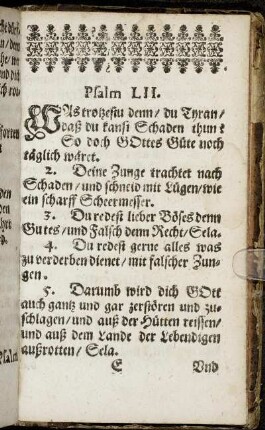 Psalm LII.
WAs trotzestu denn/ du Tyran/
daß du kanst Schaden thun?
So doch GOttes Güte noch
täglich wäret.
2. Deine Zunge trachtet nach
Schaden/ und schneid mit Lügen/ wie
ein scharff Scheermesser.
3. Du redest lieber Böses denn
Gutes/ und Falsch denn Recht/ Sela.
4. Du redest gerne alles was
zu verderben dienet/ mit falscher Zun-
gen.
5. Darumb wird dich GOtt
auch gantz und gar zerstören und zu-
schlagen/ und auß der Hütten reissen/
und auß dem Lande der Lebendigen
außrotten/ Sela.
E Und
Psalm